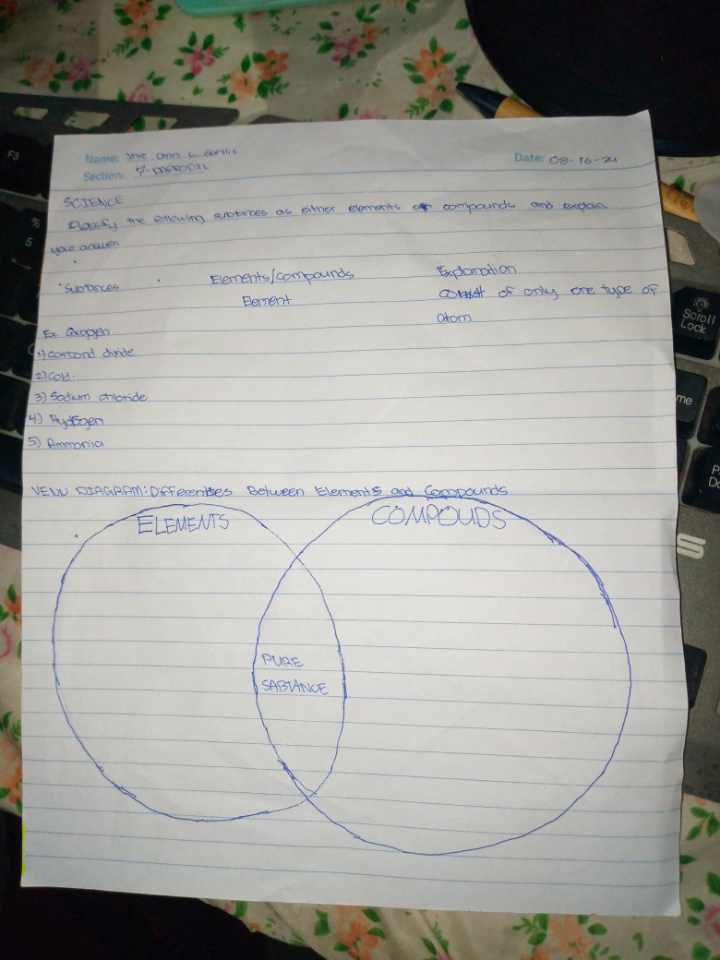 Name:
Date: 08-16-24
Section: 7-
SCIENCE
Classify the following substances as either elements or compounds and explain
your answer
Substances Elements/compounds Explanation
Element consist of only one type of
atom
Ex. Oxygen
1) Carbond dioxide
2) Gold.
3) Sodium chloride
4) Hydrogen
5) Ammonia
VENN DIAGRAM: Differentses Between Elements and Compounds
ELEMENTS
COMPOUDS
PURE
SABTANCE
F3
%
5
Scroll
Lock
me
S